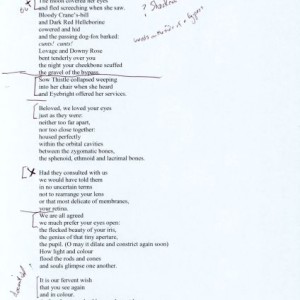 The moon covered her eyes
and fled screeching when she saw.
Bloody Crane's-bill
and Dark Red Helleborine
cowered and hid
and the passing dog-fox barked:
cunt! cunt!
Lovage and Downy Rose
bent tenderly over you
the night your cheekbone scuffed
the gravel of the bypass.
Sow Thistle collapsed weeping
into her chair when she heard
and Eyebright offered her services.
Beloved, we loved your eyes
just as they were:
neither too far apart,
nor too close together:
housed perfectly
within the orbital cavities
between the zygomatic bones,
the sphenoid, ethmoid and lacrimal bones.
X
Had they consulted with us
we would have told them
in no uncertain terms
not to rearrange your lens
or that most delicate of membranes,
your retina.
We are all agreed
we much prefer your eyes open:
the flecked beauty of your iris,
the genius of that tiny aperture,
the pupil. (O may it dilate and constrict again soon)
How light and colour
flood the rods and cones
and souls glimpse one another.
It is our fervent wish
that you see again
and in colour.